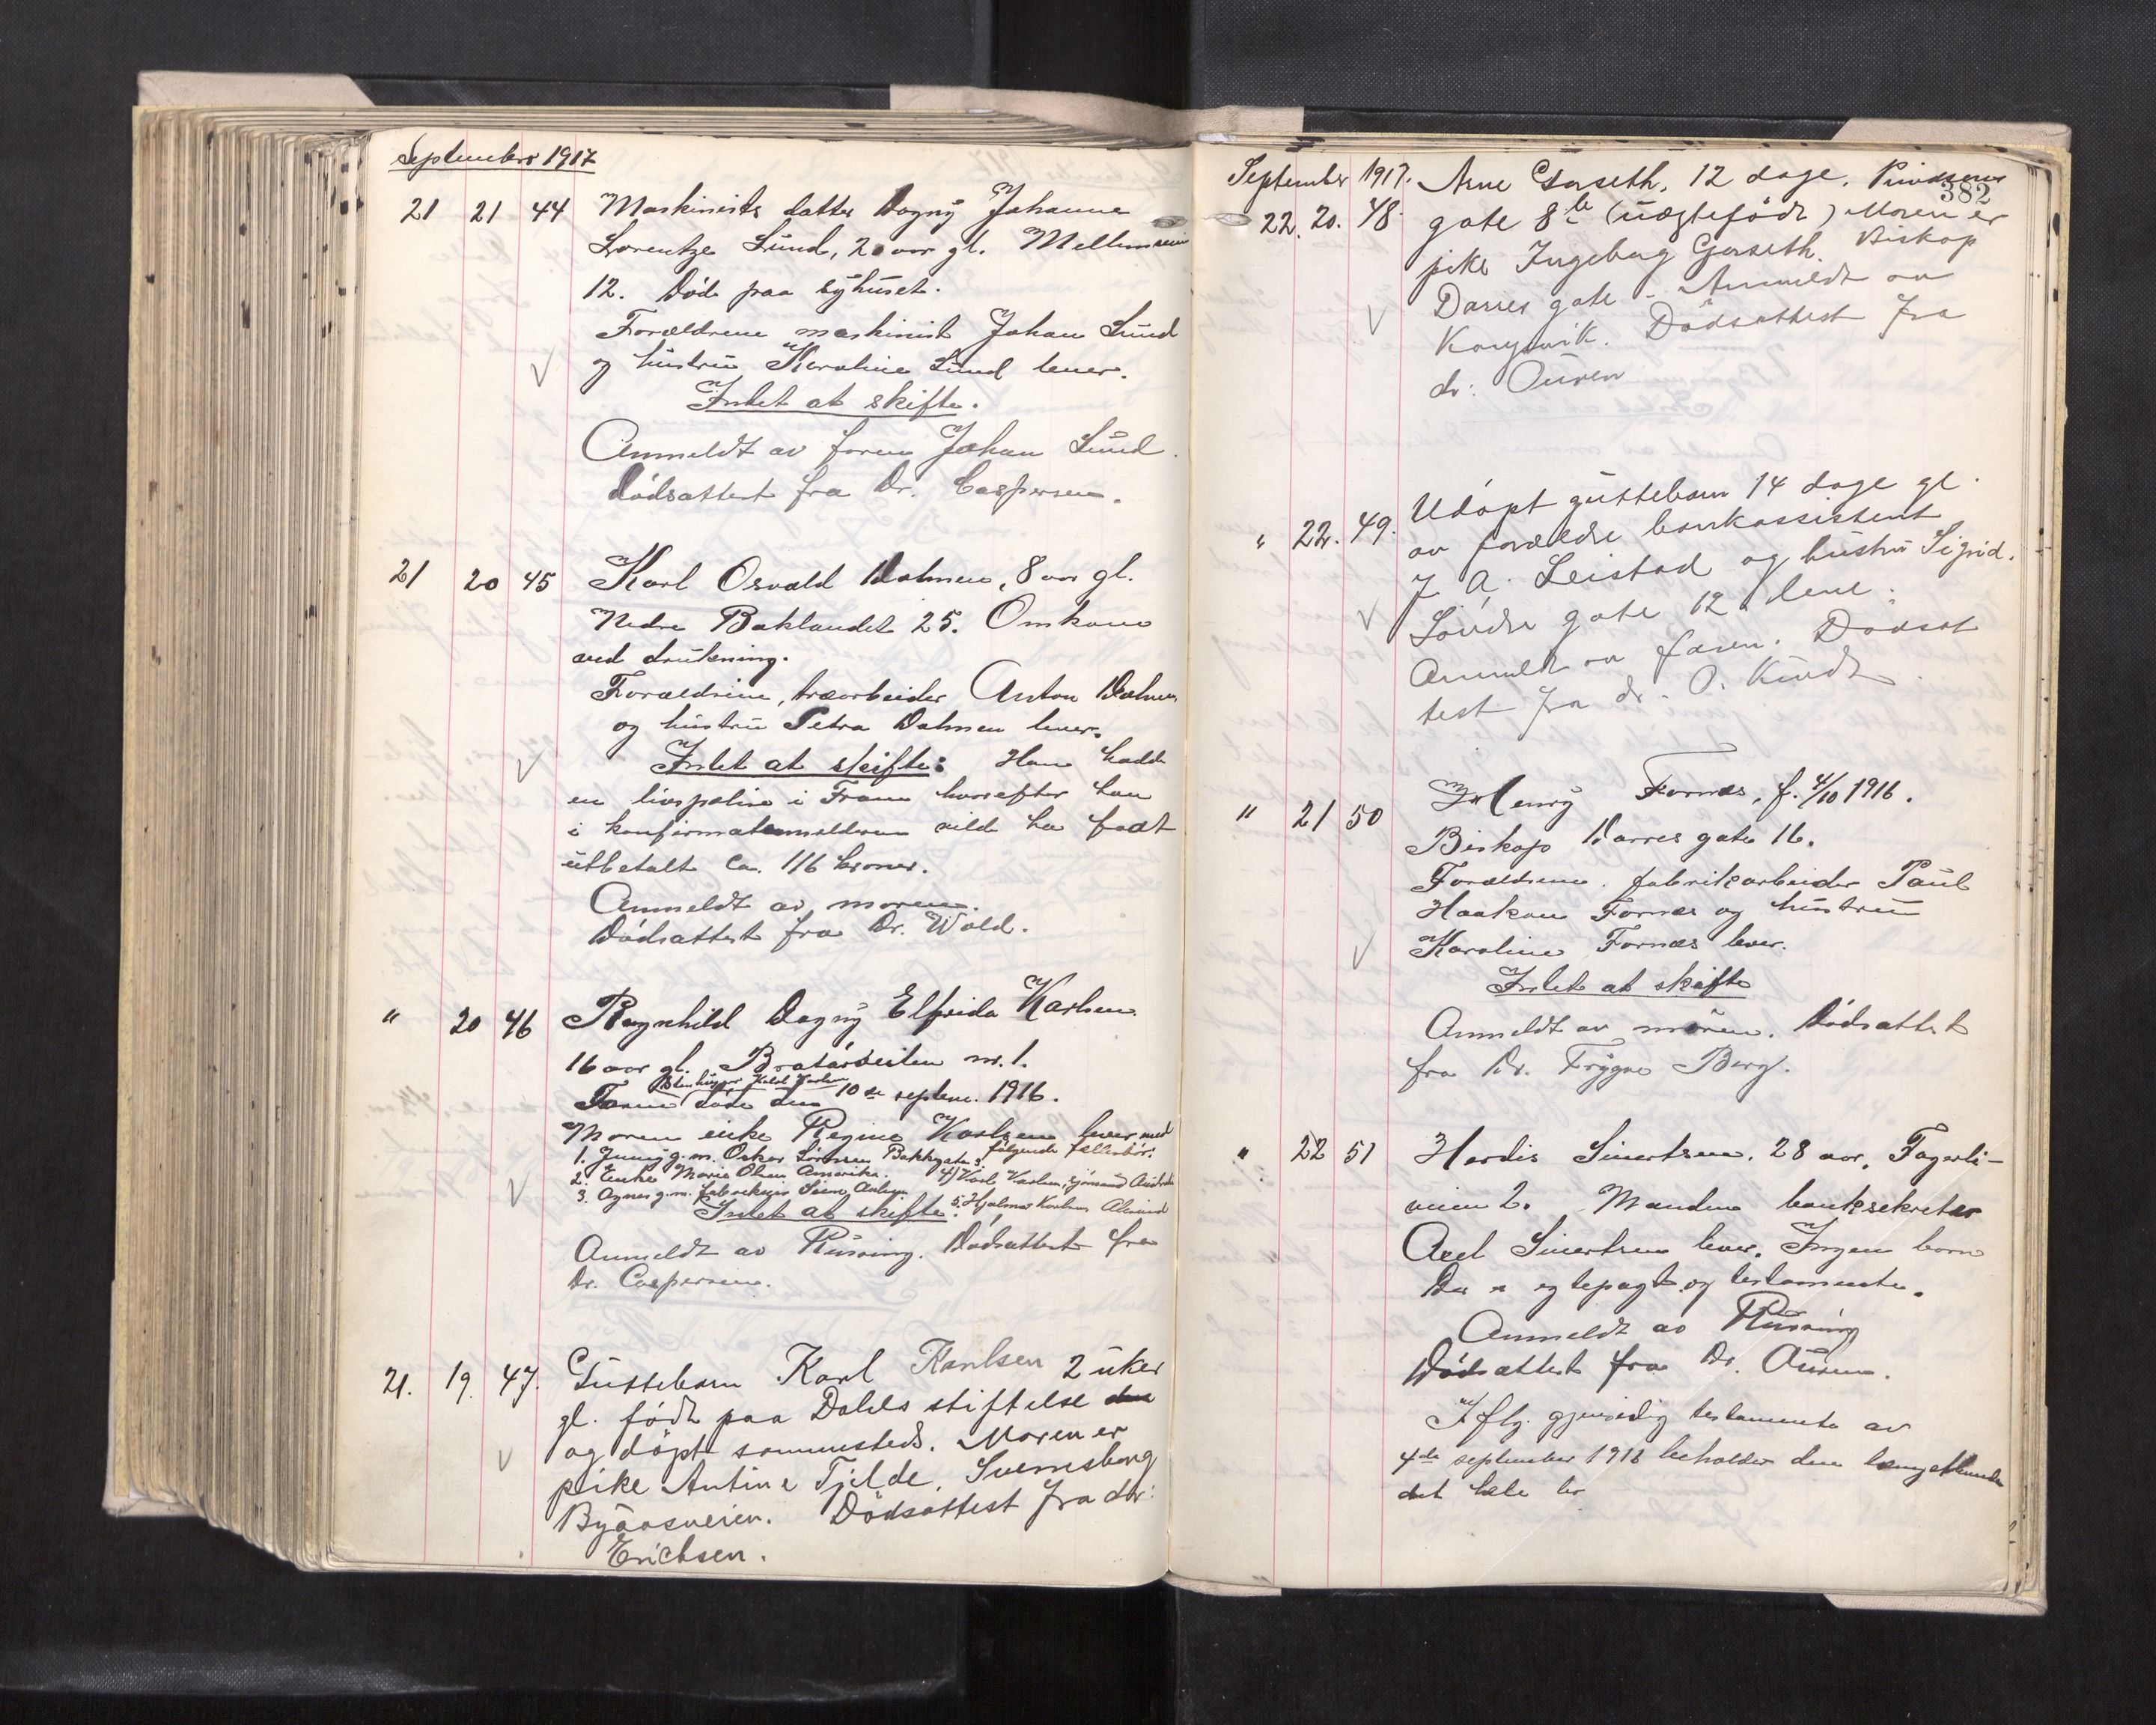 September 1917
21 21 44 Maskinists datter Dagny Johanne
Lorentze Lund, 2 aar gl. Mellemveien
12. Død paa syhuset.
Forældrene maskinist Johan Lund
og hustru Karoline Lund lever.
Intet at skifte.
Anmeldt av faren Johan Lund.
Dødsattest fra Dr. Caspersen.
21 20 45 Karl Osvald Dalmen, 8 aar gl.
Nedre Baklandet 25. Omkom
ved drukning.
Forældrene, træarbeider Anton Dalmen
og hustru Petra Dalmen lever.
Intet at skifte: Han hadde
en livspolise i Fram hvorefter han
i konfirmationsalderen vilde ha faat
utbetalt ca. 116 kroner.
Anmeldt av moren.
Dødsattest fra Dr. Wold.
" 20 46 Ragnhild Dagny Elfrida Karlsen
16 aar gl. Bratørveiten nr. 1.
Faren døde den 10de septem. 1916.
Moren enke Regine Karlsen lever med
følgende fællesbør:
1. Jenny g. m. Oskar Sørensen Bakkegaten 3.
2. Enke Marie Olsen Amerika. 4) Karl Karlsen, sjømand
3. Agnes g. m.
5. Hjalmar Karlsen
Intet at skifte.
Anmeldt av Rusning. Dødsattest fra
Dr. Caspersen.
21. 19. 47. Guttebarn Karl Karlsen 2 uker
gl. født paa Dahls stiftelse den
og døpt sammesteds. Moren er
pike Antine Tjelde, Svernsborg
Byaasveien. Dødsattest fra dr:
Erichsen.
382
September 1917. Arne Gaseth, 12 dage,
22. 20. 48. gate 8 (uægtefødt) Moren er
pike Ingeborg Gaseth. Biskop
Darres gate - Anmeldt av
Dødsattest fra
dr: Ouren
" 22. 49. Udøpt guttebarn 14 dage gl.
av forældre bankassistent
J. A. Leistad og hustru Sigrid.
Søndre gate 12 lene.
Anmeldt av faren. Dødsat
test fra dr. O. Kindt.
" 21 50 Henry Fornes, f. 4/10 1916.
Biskop Darres gate 16.
Forældrene. fabrikarbeider Paul
Haakon Fornæs og hustru
Karoline Fornæs lever.
Intet at skifte
Anmeldt av moren. Dødsattest
fra Dr. Trygve Berg.
" 22 51 Herdis Sivertsen. 28 aar, Fagerli-
veien 2. Manden banksekretær
Axel Sivertsen lever. Ingen barn
Der er egtepagt og testamente.
Anmeldt av Rusning
Dødsattest fra Dr. Ouren.
Iflg. gjensidig testamente av
4de september 1916 beholder den længstlevende
det hele bo